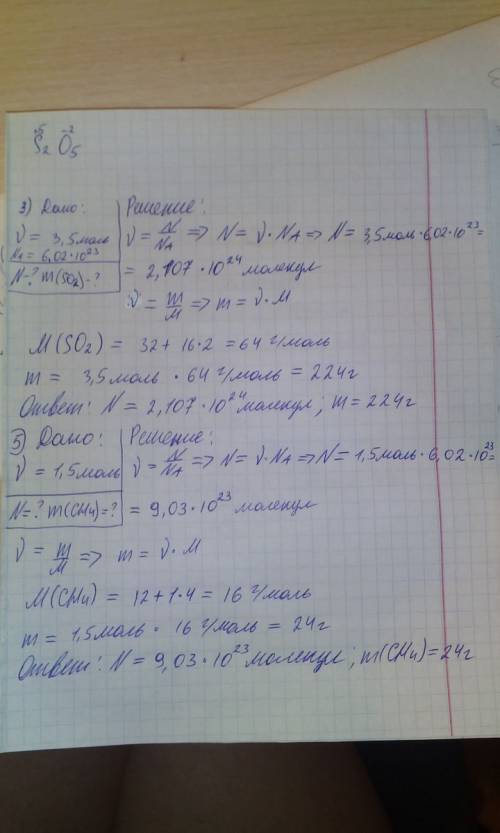 +5 -2
S₂ O₅
3) Дано:
ν = 3,5моль
Nₐ = 6,02·10²³
N-? m(SO₂)-?
Решение:
ν = N/Nₐ => N = ν·Nₐ => N = 3,5моль·6,02·10²³ =
= 2,107·10²⁴ молекул
ν = m/M => m = ν·M
M(SO₂) = 32+16·2 = 64 г/моль
m = 3,5моль · 64 г/моль = 224г
Ответ: N = 2,107·10²⁴ молекул; m = 224г
5) Дано:
ν = 1,5моль
N=? m(CH₄)=?
Решение:
ν = N/Nₐ => N = ν·Nₐ => N = 1,5моль·6,02·10²³ =
= 9,03·10²³ молекул
ν = m/M => m = ν·M
M(CH₄) = 12+1·4 = 16 г/моль
m = 1,5моль · 16 г/моль = 24г
Ответ: N = 9,03·10²³ молекул; m(CH₄) = 24г